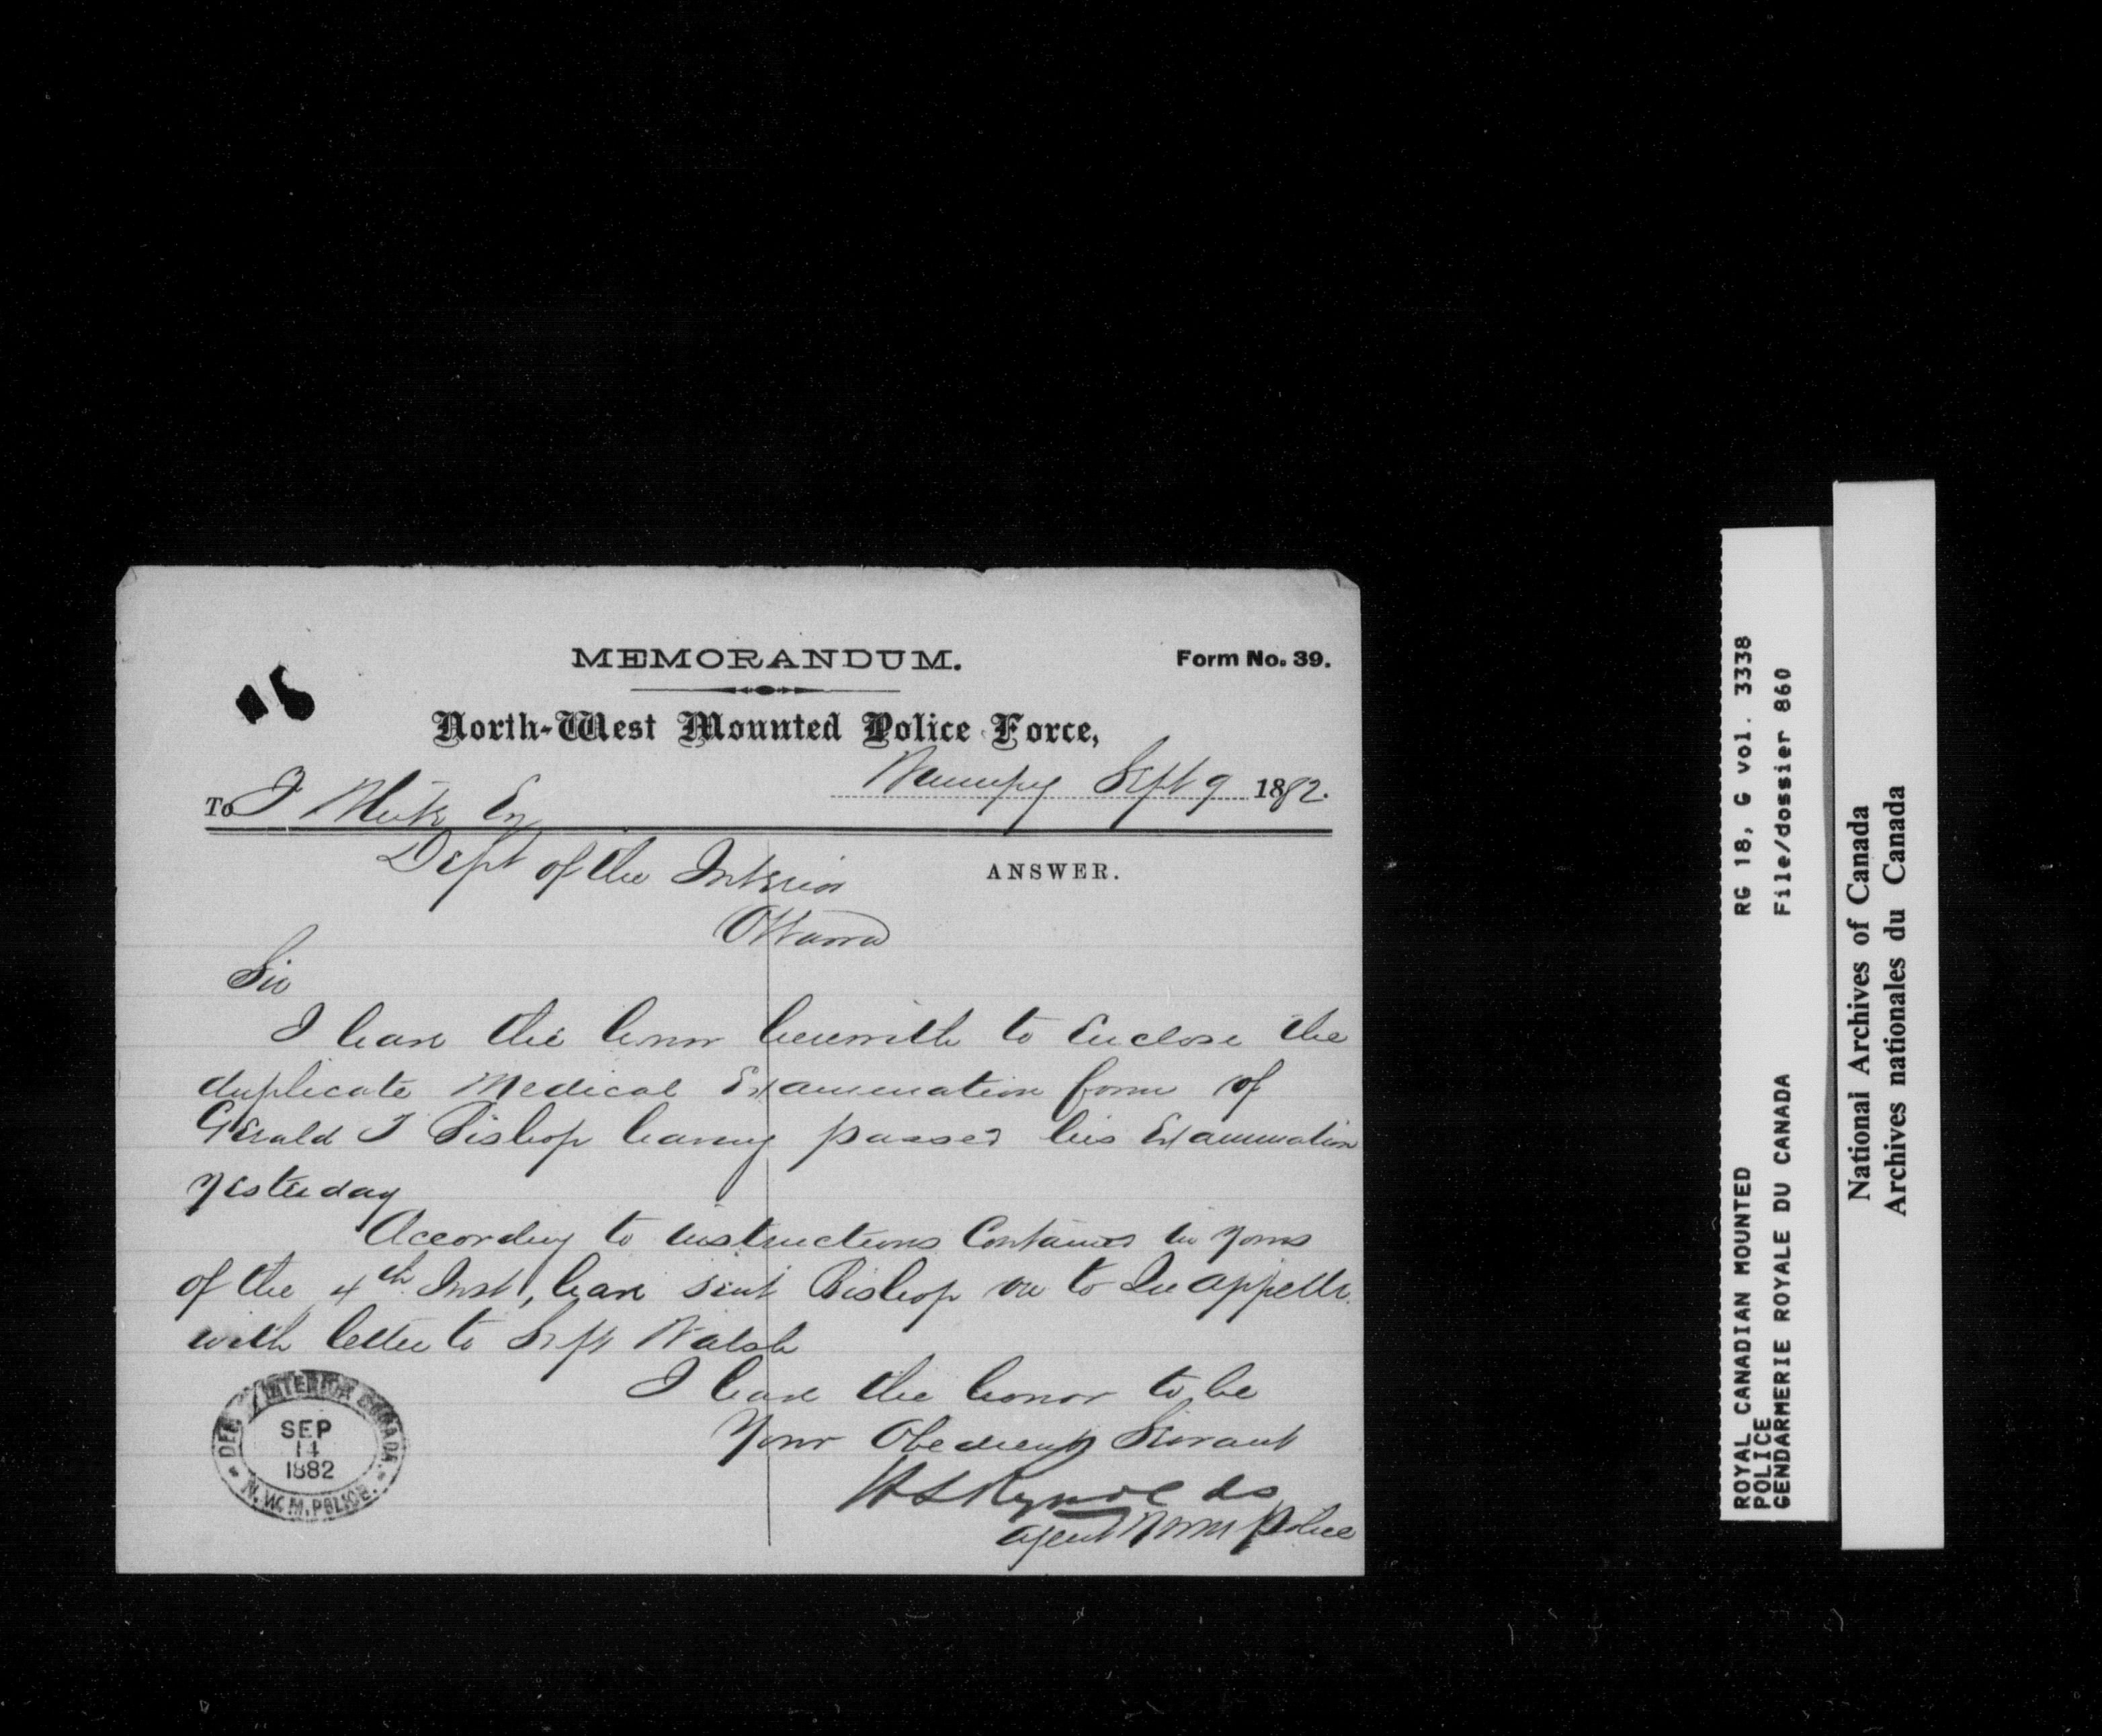 MEMORANDUM.
Form No. 39.
North-West Mounted Police Force,
Winnipeg Sept 9 1882.
To F White Esq
Dept of the Interior
ANSWER.
Ottawa
Sir
I have the honor herewith to Enclose the
duplicate Medical Examination form of
Gerald T Bishop having passed his Examination
yesterday
According to instructions Contained in yours
of the 4th Inst, have sent Bishop on to Qu'appelle
with letter to Supt Walsh
I have the honor to be
Your Obedient Servant
Reynolds
agent NWM Police
DEPT INTERIOR CANADA.
SEP
14
1882
N.W.M. POLICE.
ROYAL CANADIAN MOUNTED RG 18, G vol. 3338
POLICE
GENDARMERIE ROYALE DU CANADA File/dossier 860
National Archives of Canada
Archives nationales du Canada